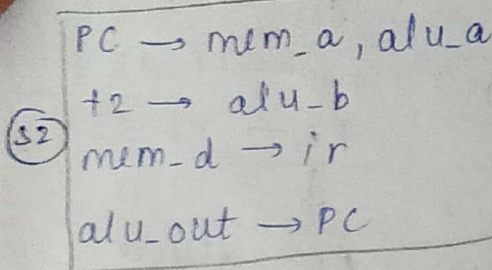 PC → mem_a, alu_a
+2 → alu_b
S2
mem_d → ir
alu_out → PC